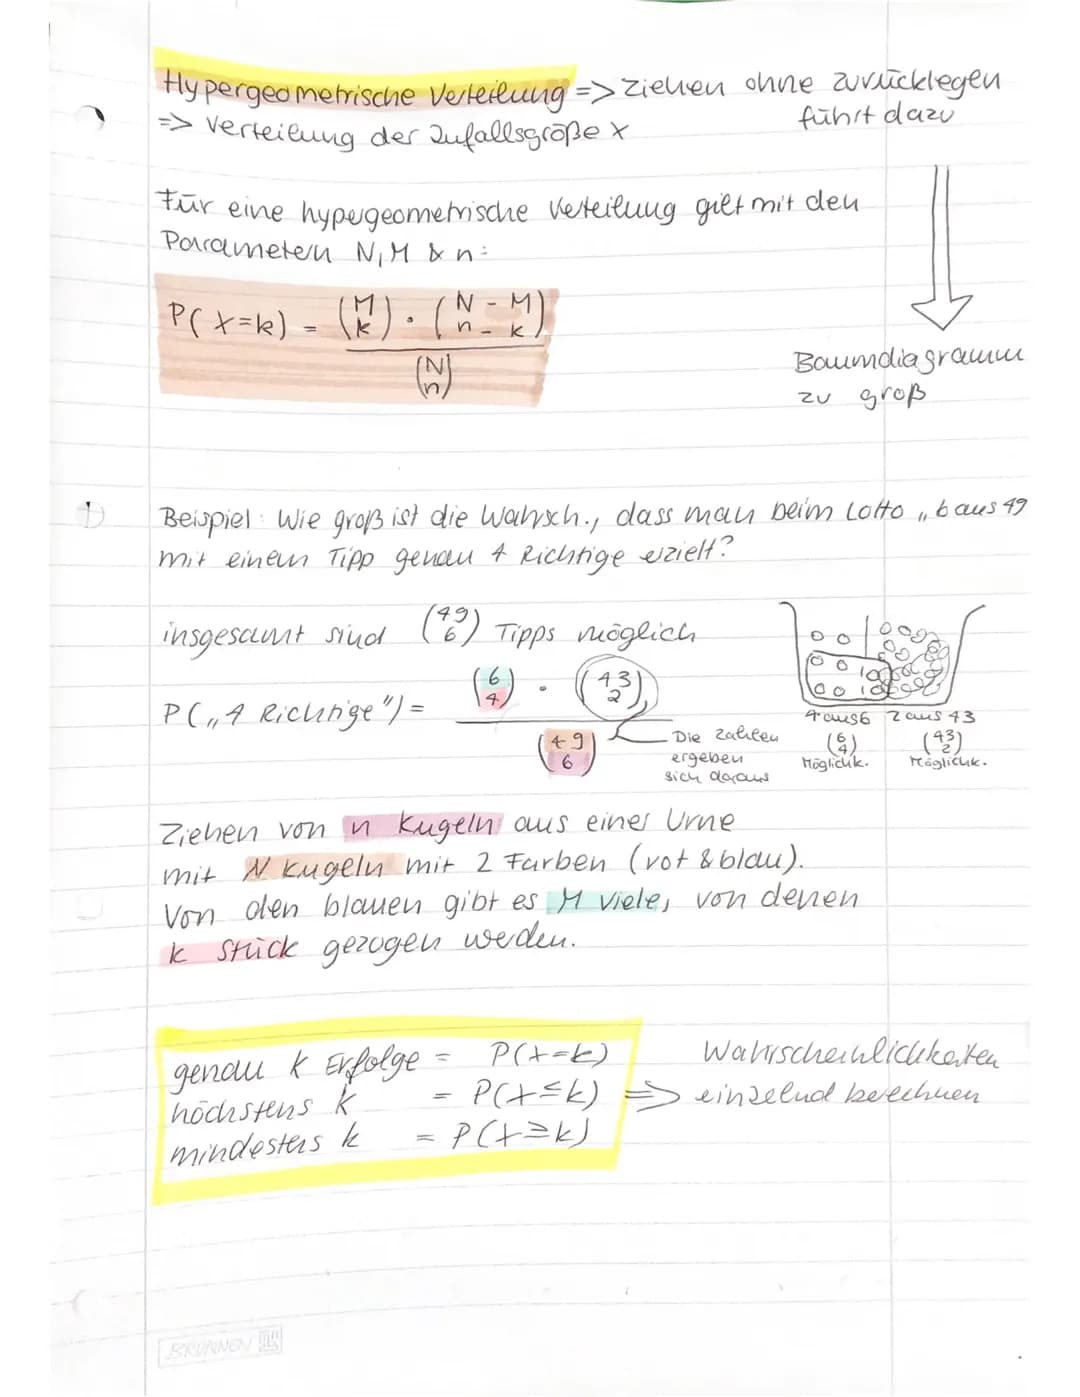 Hypergeometrische Verteilung => Ziehen ohne zurücklegen
=> Verteilung der Zufallsgröße X
führt dazu
Für eine hypergeometrische Verteilung gilt mit den
Parametern N, M & n:
P(X=k) = (M k) · (N - M n - k)
(N n)
Baumdiagramm
zu groß
Beispiel: Wie groß ist die Wahrsch., dass man beim Lotto „6 aus 49
mit einem Tipp genau 4 Richtige erzielt?
insgesamt sind (49 6) Tipps möglich
P(„4 Richtige") = (6 4) · (43 2)
(49 6)
Die Zahlen
ergeben
sich daraus
4 aus 6 2 aus 43
(6 4) (43 2)
Möglichk. Möglichk.
Ziehen von n Kugeln aus einer Urne
mit N Kugeln mit 2 Farben (rot & blau).
Von den blauen gibt es M viele, von denen
k Stück gezogen werden.
genau k Erfolge = P(X=k)
höchstens k = P(X≤k)
mindestens k = P(X≥k)
=> Wahrscheinlichkeiten
einzelnd berechnen
BRUNNEN